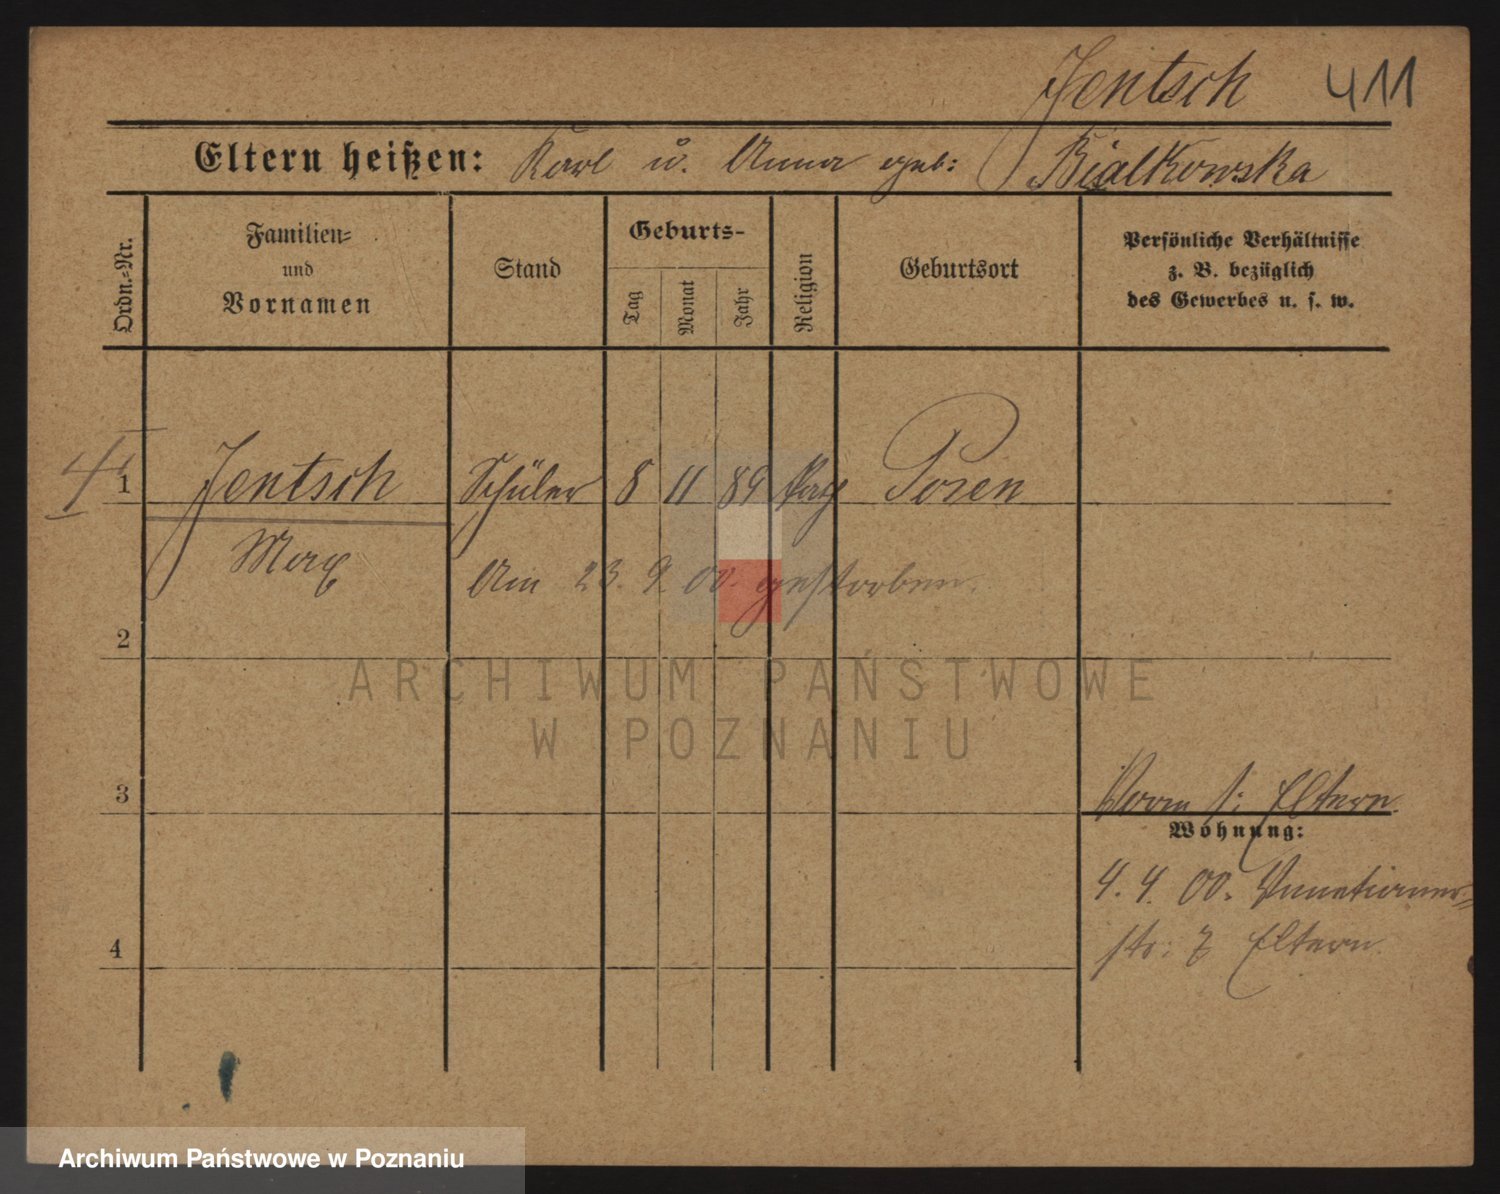 Jentsch 411
Eltern heißen: Karl u. Anna geb: Bialkowska
Ordn.-Nr.
Familien-
und
Vornamen
Stand
Geburts-
Tag
Monat
Jahr
Religion
Geburtsort
Persönliche Verhältnisse
z. B. bezüglich
des Gewerbes u. s. w.
1 Jentsch Schüler 8 11 89 Posen
Max
Am 23. 9. 00. gestorben.
2
ARCHIWUM PAŃSTWOWE
W POZNANIU
3
Eltern
Wohnung:
4. 4. 00. Venetianer-
str: 7 Eltern.
4
Archiwum Państwowe w Poznaniu